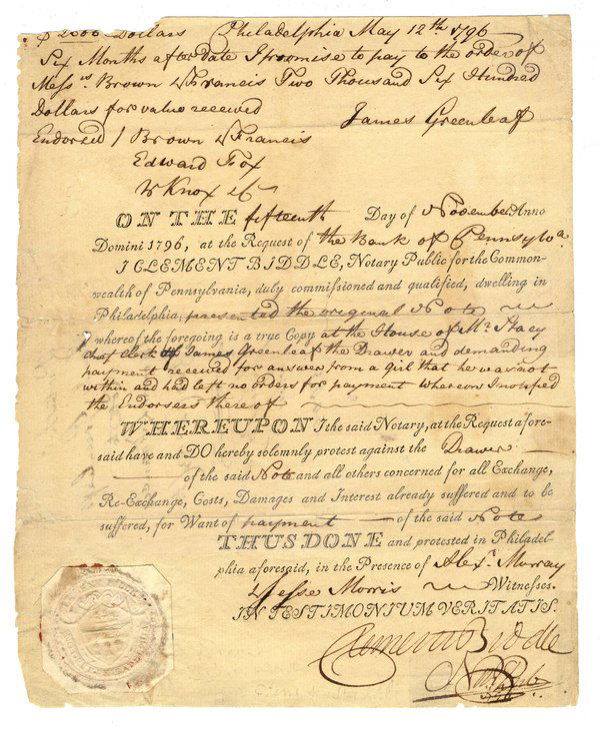 $ 2600 Dollars Philadelphia May 12th 1796
Six Months after Date I promise to pay to the order of
Messrs. Brown & Francis Two Thousand Six Hundred
Dollars for value received
James Greenleaf
Endorsed / Brown & Francis
Edward Fox
W Knox
ON THE fifteenth Day of November Anno
Domini 1796, at the Request of the Bank of Pennsylva.
I CLEMENT BIDDLE, Notary Public for the Common-
wealth of Pennsylvania, duly commissioned and qualified, dwelling in
Philadelphia, presented the original Note
whereof the foregoing is a true Copy at the House of Mr. Stacy
chief clerk of James Greenleaf the Drawer and demanding
payment received for answer from a girl that he was not
within and had left no orders for payment whereon I notified
the Endorsers thereof
WHEREUPON I the said Notary, at the Request afore-
said have and DO hereby solemnly protest against the Drawer
of the said Note and all others concerned for all Exchange,
Re-Exchange, Costs, Damages and Interest already suffered and to be
suffered, for Want of payment of the said Note
THUS DONE and protested in Philadel-
phia aforesaid, in the Presence of Alexr. Murray
& Jesse Morris Witnesses.
IN TESTIMONIUM VERITATIS.
Clement Biddle